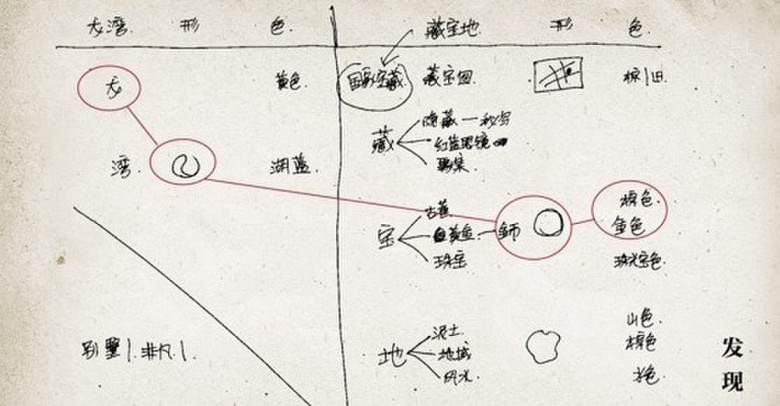 大湾 形 色 藏宝地 形 色
大 黄色 国家宝藏 藏宝图 棕/旧
藏 隐藏一秘密
红蓝眼镜
聚集
湾 湖蓝
宝 古董
黄金
珠宝
棕色
金色
珠光宝色
地 泥土
地域
风水
山色
棕色
水色
别墅/非凡/
发现